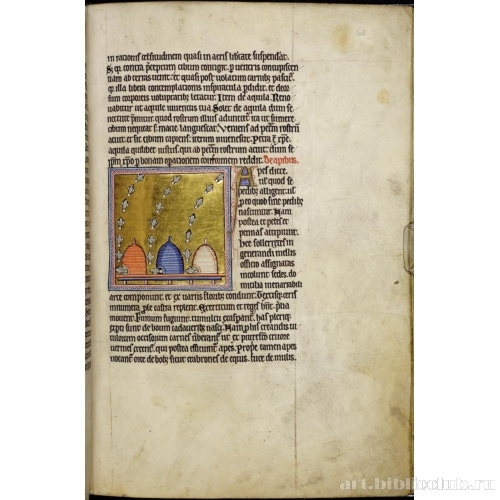 in rationis celsitudinem quasi in aeris libertate suspendat.
contra preceptum cibum contigit
ad terras uenit. et quasi post uolatum carnibus pascitur
quia libera contemplationis inspiracula perdidit. et deor
sum corporeis uoluptatibus letatur. Item de aquila. Reno
uabitur ut aquile iuuentus tua Solet de aquila dum se
nectute premitur quod rostrum illius aduncetur ita ut sumere
cibum nequeat sed macie languescat. Veniens ad petram rostrum
acuit. et sic cibum capiens. iterum iuuenescit. Petra est xpc.
aquila quilibet iustus. qui ad petram rostrum acuit. dum se
ipsum xpo per bonam operationem conformem reddit. De apibus.
Apes dicte
sunt quod se
pedibus alligent. uel
pro eo quod sine pedibus
nascuntur. Nam
postea et pedes et
pennas accipiunt.
Hec sollertes in
generandi mellis
officio assignatas
incolunt sedes. do
micilia inenarrabili
arte componunt. et ex uariis floribus condunt. Textisque ceris
innumera prole castra replent. Exercitum et reges habent. prelia
mouent. Fumum fugiunt. tumultu exasperantur. has pleri
experti sunt de boum cadaueribus nasci. Nam pro his creandis ui
tulorum occisorum carnes uerberantur. ut ex putrefacto cruore
uermes creentur. qui postea efficiuntur apes. Proprie tamen apes
uocantur orte de bobus sicut crabrones de equis. fuci de mulis.
art.biblioclub.ru